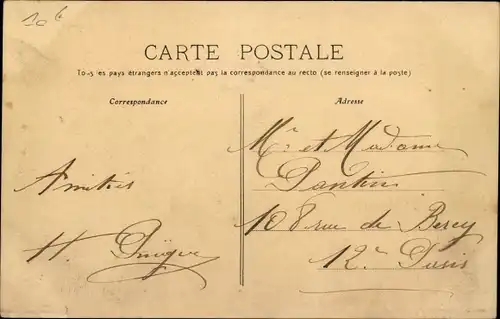 10 €
CARTE POSTALE
Tous les pays étrangers n'acceptent pas la correspondance au recto (se renseigner à la poste)
Correspondance
Adresse
Mr et Madame
Pantin
108 rue de Bercy
12e Paris
Amitiés
H.